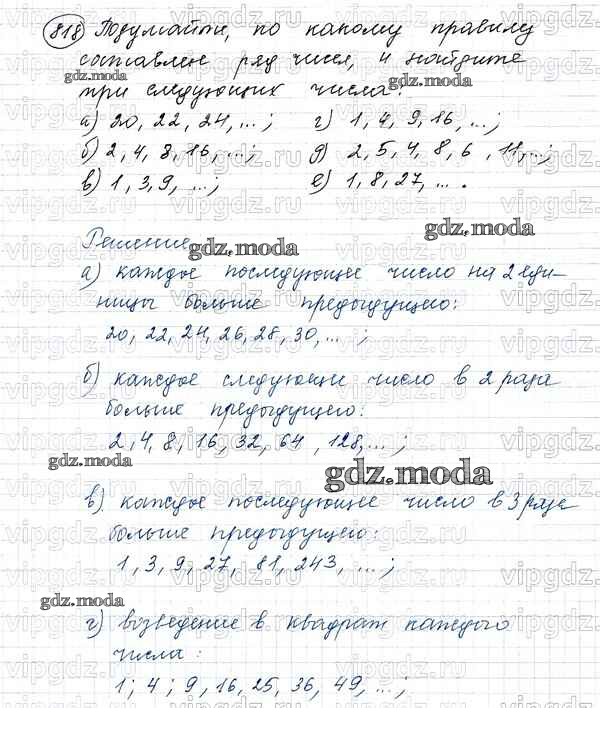 818 Подумайте, по какому правилу
составлен ряд чисел, и найдите
gdz.moda
три следующих числа:
gdz.moda
а) 20, 22, 24, ... ; г) 1, 4, 9, 16, ... ;
б) 2, 4, 8, 16, ... ; д) 2, 5, 4, 8, 6, 11, ... ;
в) 1, 3, 9, ... ; е) 1, 8, 27, ... .
gdz.moda
Решение
gdz.moda
а) каждое последующее число на 2 еди-
ницы больше предыдущего:
20, 22, 24, 26, 28, 30, ... ;
б) каждое следующее число в 2 раза
больше предыдущего:
2, 4, 8, 16, 32, 64, 128, ... ;
gdz.moda
gdz.moda
в) каждое последующее число в 3 раза
больше предыдущего:
1, 3, 9, 27, 81, 243, ... ;
gdz.moda
г) возведение в квадрат каждого
числа:
1; 4; 9, 16, 25, 36, 49, ... ;